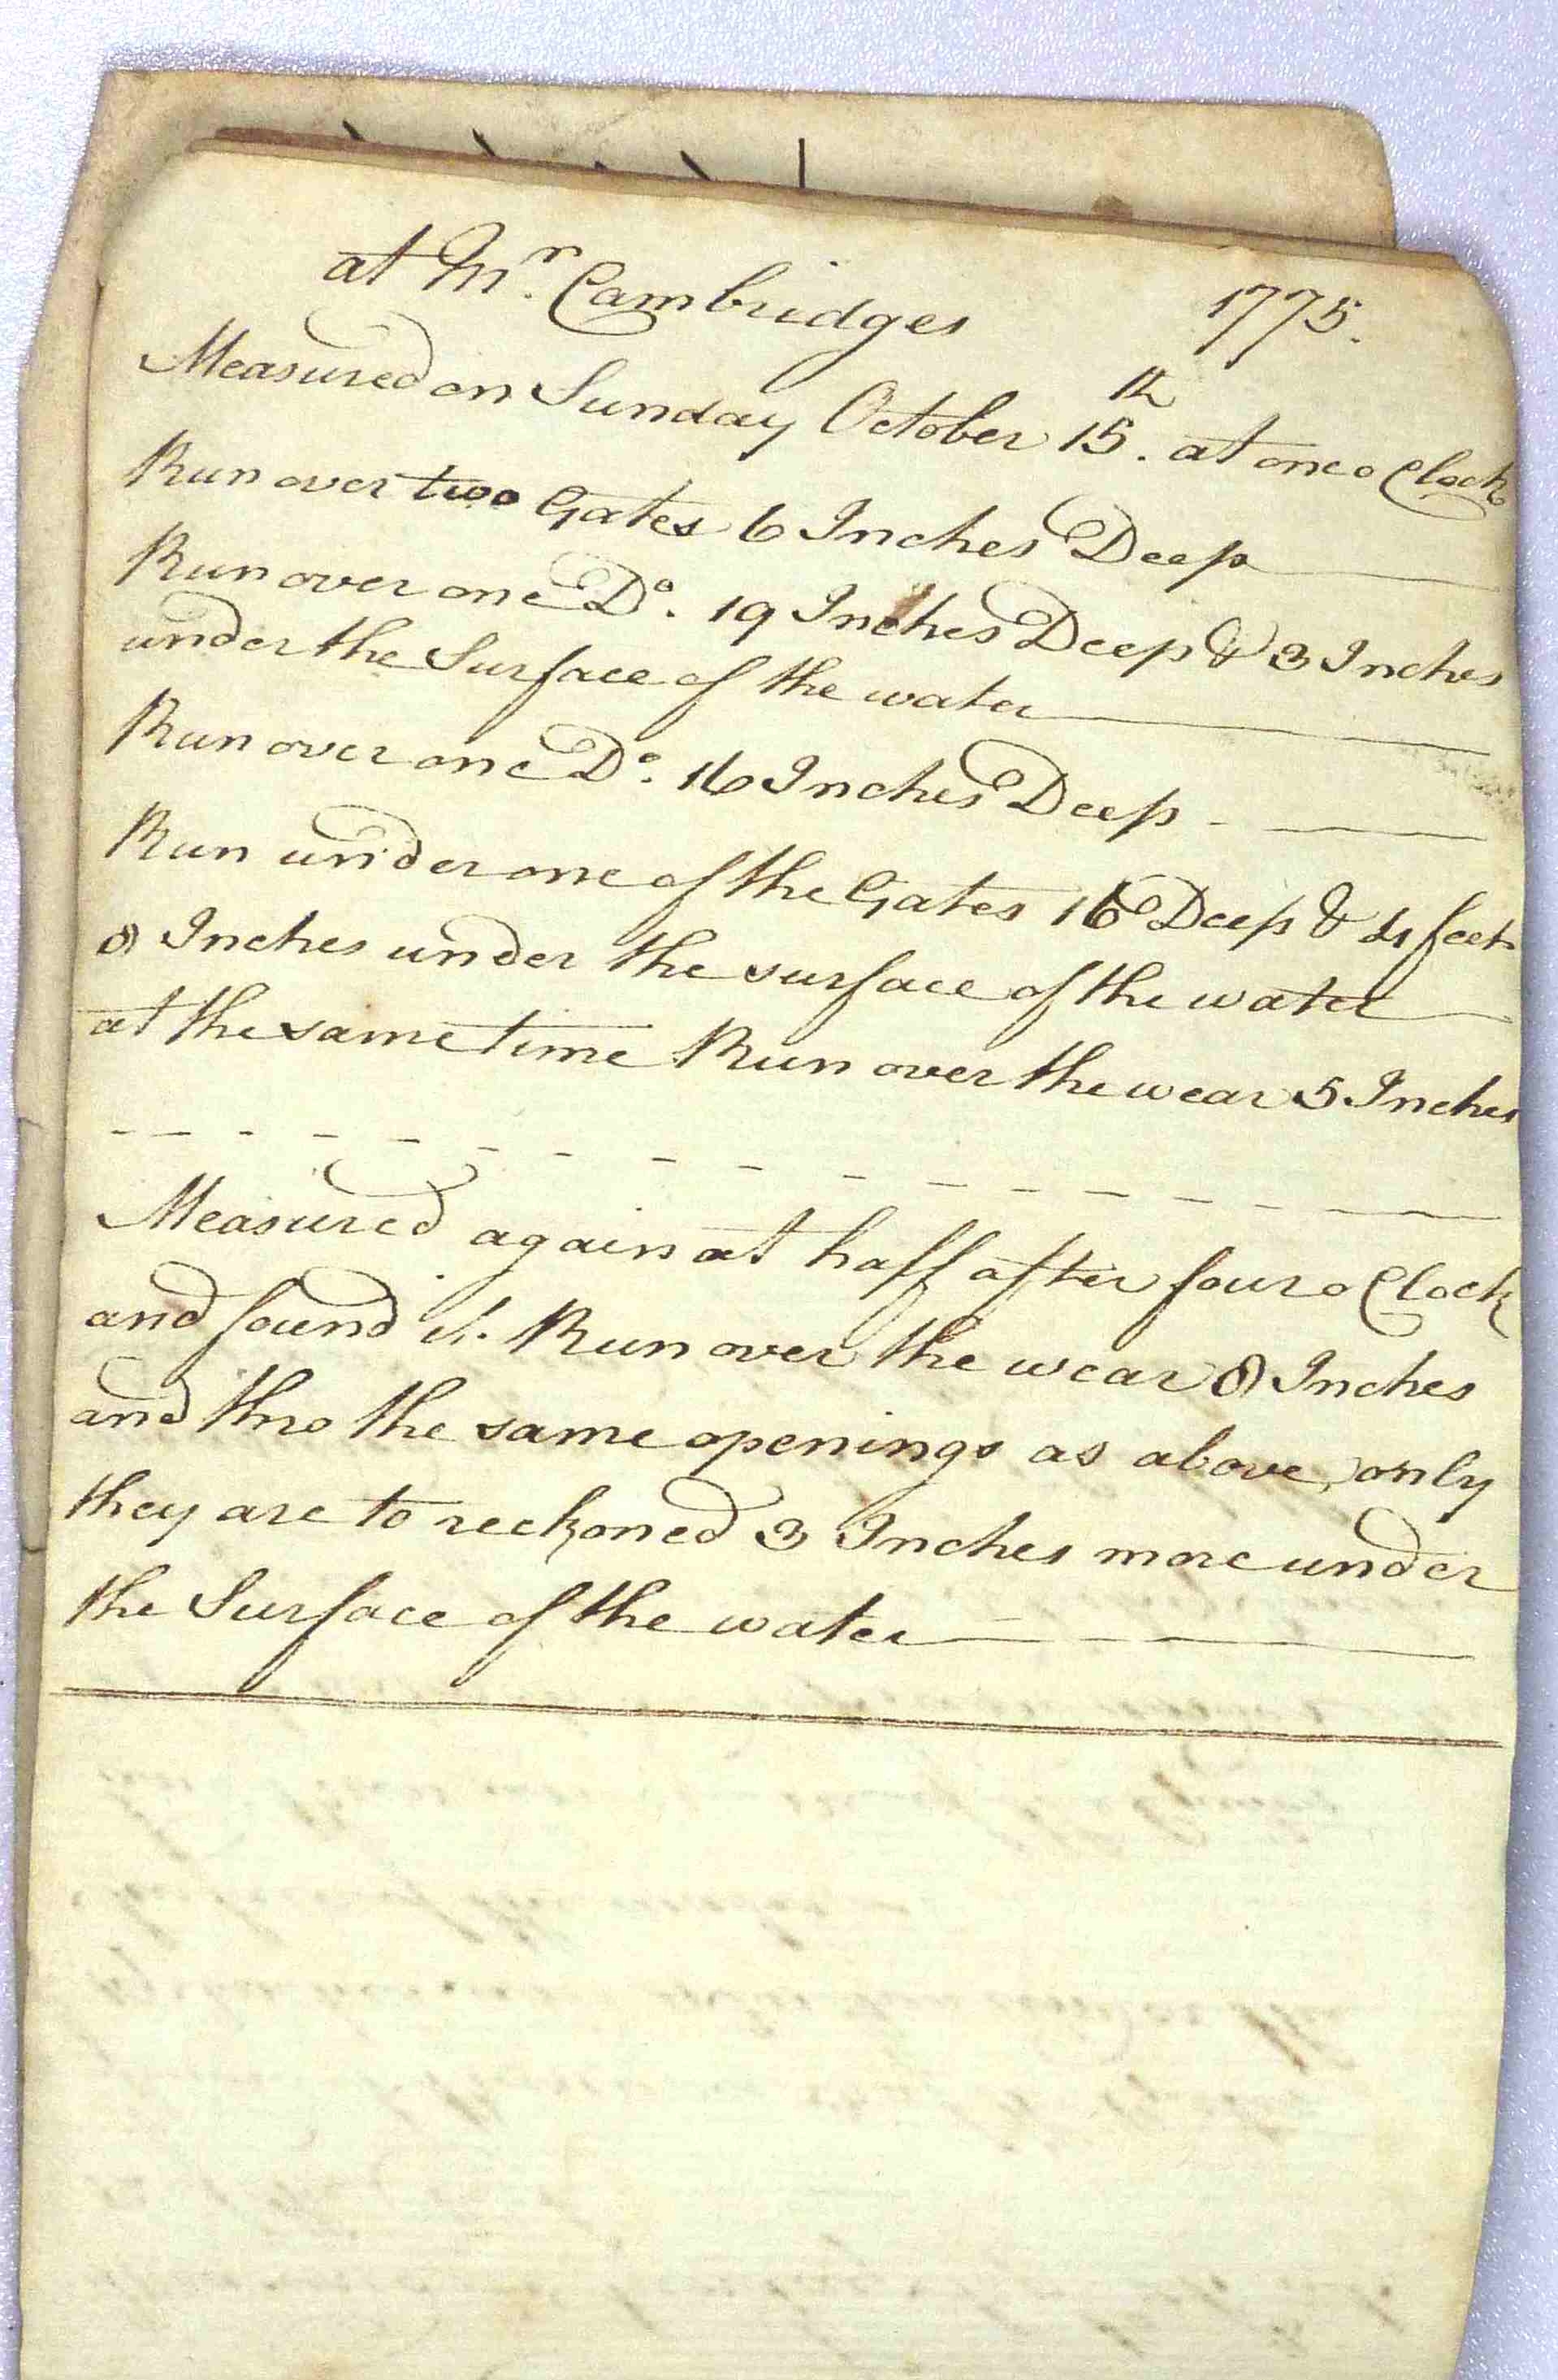 at Mr. Cambridges 1775.
Measured on Sunday October 15th. at one o Clock
Run over two Gates 6 Inches Deep
Run over one Do. 19 Inches Deep & 3 Inches
under the Surface of the water
Run over one Do. 16 Inches Deep
Run under one of the Gates 16 Deep & 4 feet
8 Inches under the surface of the water
at the same time Run over the wear 5 Inches
Measured again at half after four o Clock
and found it. Run over the wear 8 Inches
and thro the same openings as above, only
they are to reckoned 3 Inches more under
the Surface of the water